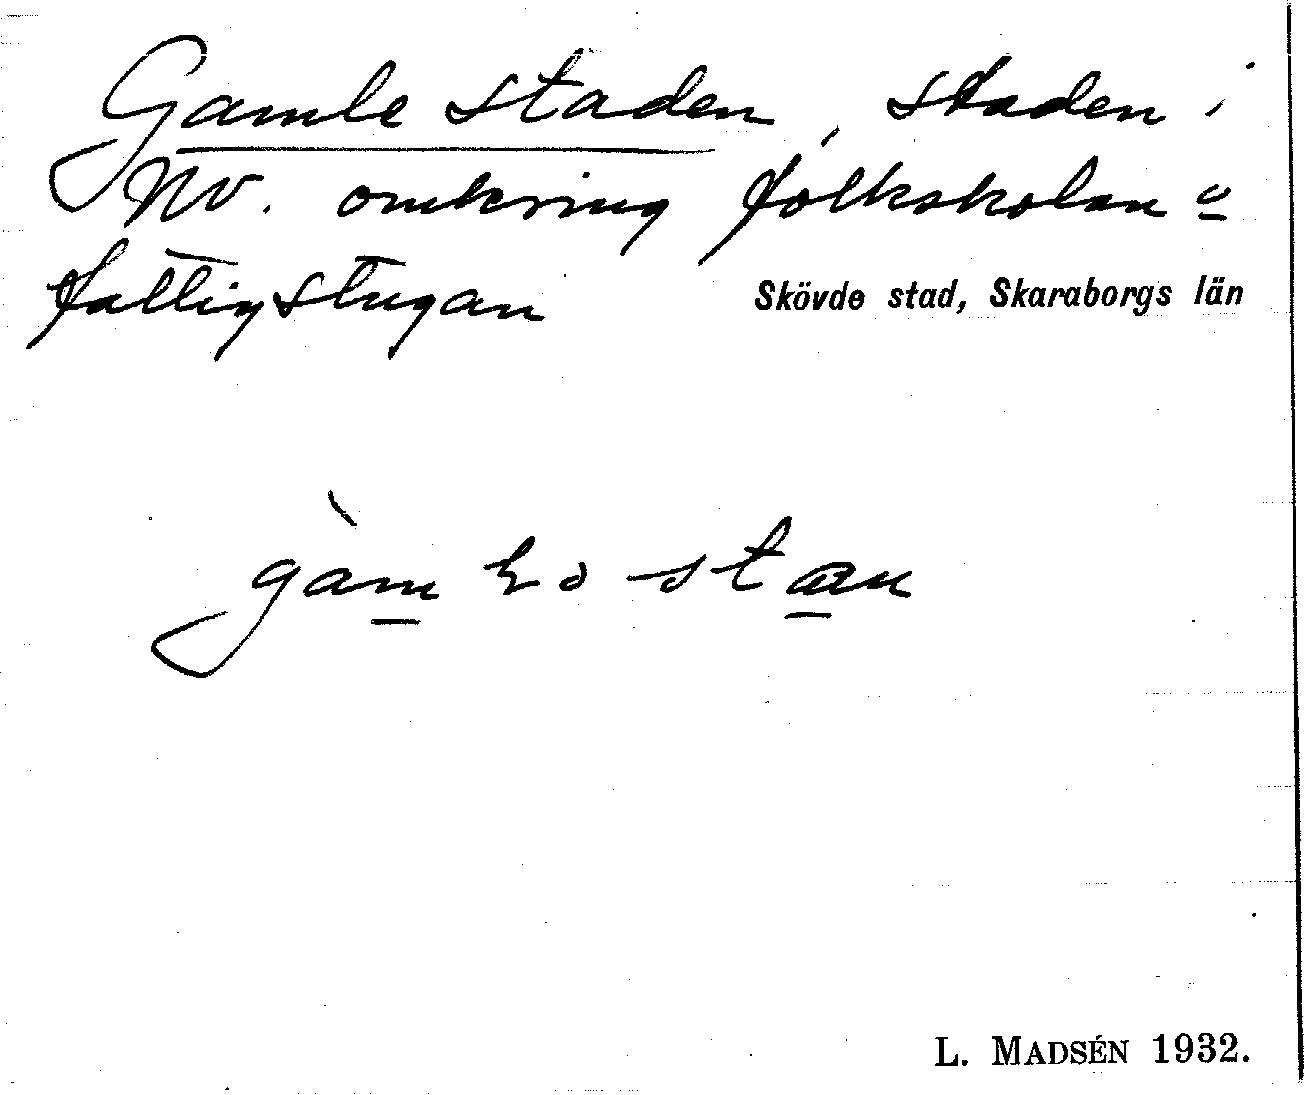 Gamle staden, staden i
NV. omkring folkskolan o
fattigstugan
Skövde stad, Skaraborgs län
L. MADSÉN 1932.